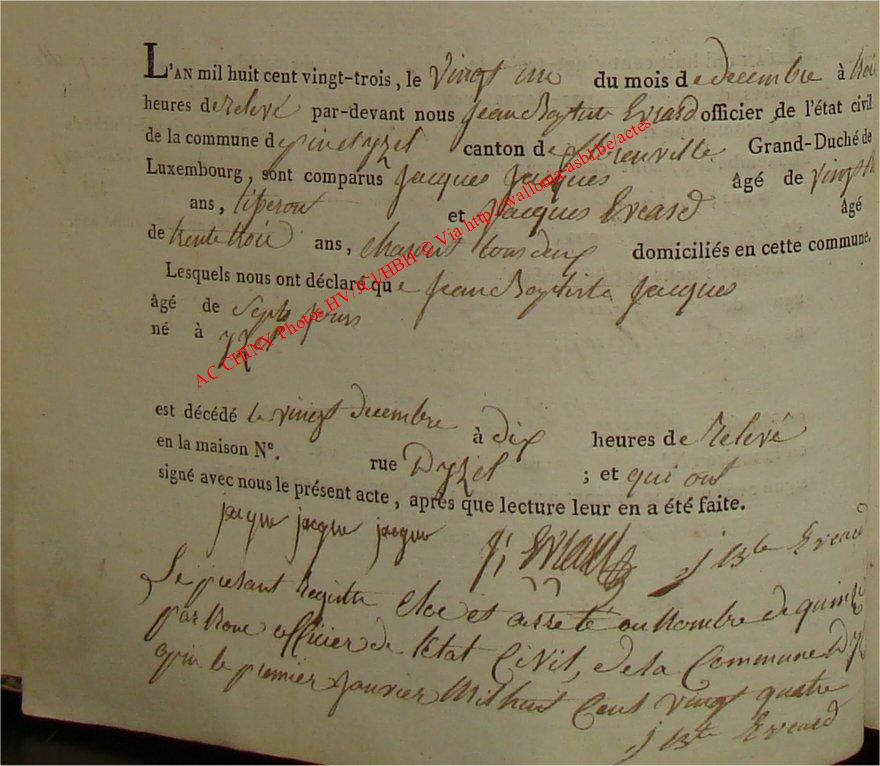 L'AN mil huit cent vingt-trois, le vingt un du mois de decembre à trois
heures de relevé par-devant nous Jean Baptiste Evrard officier de l'état civil
de la commune d pin et yzel canton de florenville Grand-Duché de
Luxembourg, sont comparus Jacques Jacques âgé de vingt
ans, tiseron et Jacques Evrard âgé
de trente trois ans, charon tous deux domiciliés en cette commune.
Lesquels nous ont déclaré que Jean Baptiste Jacques
âgé de Septs jours
né à yzel
AC CHINY Photos HV/JCVHBH © Via http://wallonia-asbl.be/actes
est décédé le vingt decembre à dix heures de relevé
en la maison N°. rue Dyzel ; et qui ont
signé avec nous le présent acte, après que lecture leur en a été faite.
jacque jacque jacque J; Evrard j Bte Evrard
Le présant Registre Clos et arreté au Nombre de quinze
par Nous officier de l'Etat Civil, de la Commune
le premier Janvier Mil huit Cent vingt quatre
j Bte Evrard